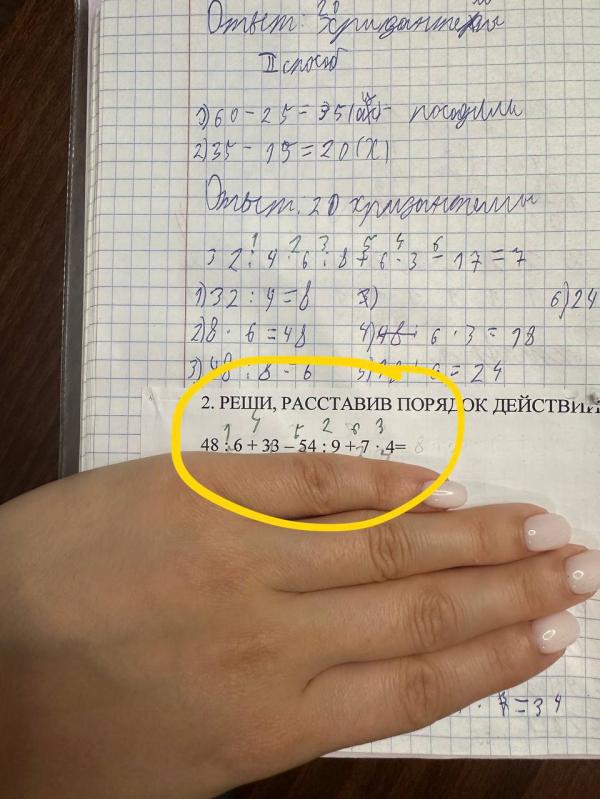 Ответ: 20 хризантемы
II способ
1) 60 - 25 = 35 посадили
2) 35 - 15 = 20 (х)
Ответ. 20 хризантемы
1 2 3 5 4 6
32 : 4 · 6 : 8 + 6 · 3 - 17 = 7
1) 32 : 4 = 8
6) 24
2) 8 · 6 = 48 4) 6 · 3 = 18
3) 48 : 8 = 6 5) 18 + 6 = 24
2. РЕШИ, РАССТАВИВ ПОРЯДОК ДЕЙСТВИЙ
1 4 5 2 6 3
48 : 6 + 33 – 54 : 9 + 7 · 4=
= 34